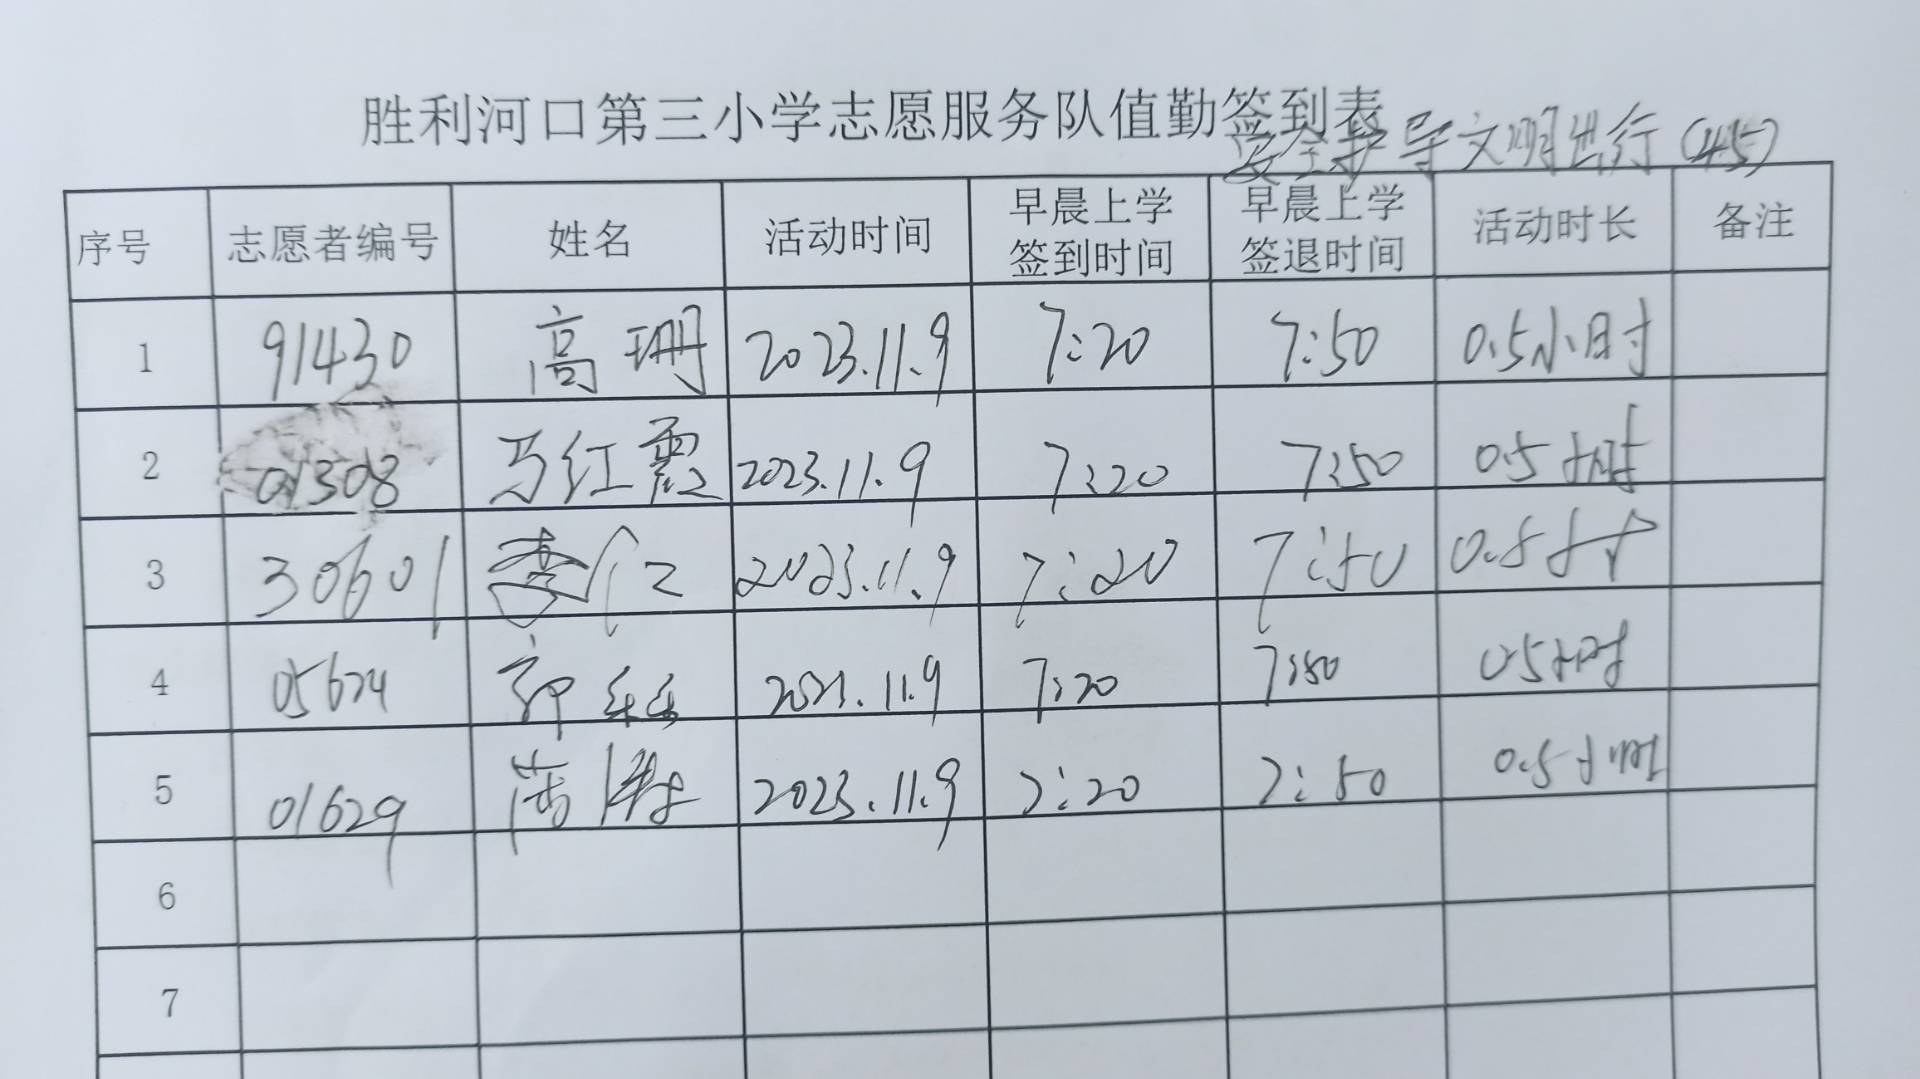 胜利河口第三小学志愿服务队值勤签到表
安全护导文明进行(45)
序号 志愿者编号 姓名 活动时间 早晨上学签到时间 早晨上学签退时间 活动时长 备注
1 91430 高珊 2023.11.9 7:20 7:50 0.5小时
2 01308 马红霞 2023.11.9 7:20 7:50 0.5小时
3 30601 李仁 2023.11.9 7:20 7:50 0.5小时
4 05624 2023.11.9 7:20 7:50 0.5小时
5 01629 2023.11.9 7:20 7:50 0.5小时
6
7